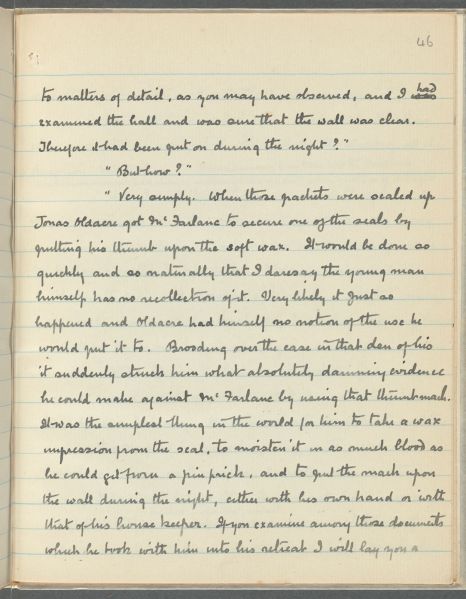 46
to matters of detail, as you may have observed, and I had
examined the hall and was sure that the wall was clear.
Therefore it had been put on during the night?"
"But how?"
"Very simply. When those packets were sealed up
Jonas Oldacre got McFarlane to secure one of the seals by
putting his thumb upon the soft wax. It would be done so
quickly and so naturally that I daresay the young man
himself has no recollection of it. Very likely it just so
happened and Oldacre had himself no notion of the use he
would put it to. Brooding over the case in that den of his
it suddenly struck him what absolutely damning evidence
he could make against McFarlane by using that thumb mark.
It was the simplest thing in the world for him to take a wax
impression from the seal, to moisten it in as much blood as
he could get from a pin prick, and to put the mark upon
the wall during the night, either with his own hand or with
that of his house keeper. If you examine among those documents
which he took with him into his retreat I will lay you a